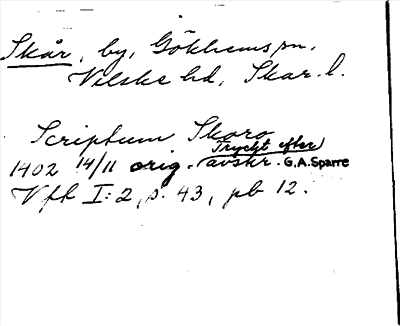 Skår, by, Gökhems sn,
Vilske hd, Skar. l.
Scriptum Skoro
1402 14/11 orig. Tryckt efter avskr. G.A. Sparre
Vft I:2, s. 43, pb 12.